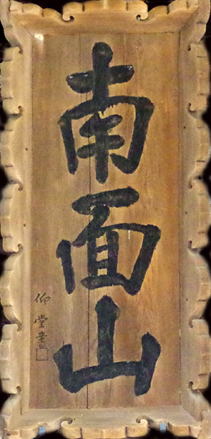 南面山
仰堂書